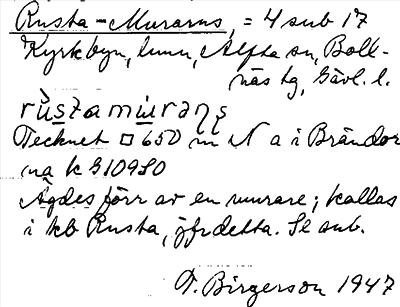 Rusta-Murarns, = 4 sub 17
Kyrkbyn, hmn, Alfta sn, Boll-
näs tg, Gävl. l.
rùstamiurąnş
Tecknet □ 650 m N a i Brändor
na k S10980
Ägdes förr av en murare; kallas
i kb Rusta, jfr detta. Se sub.
T. Birgerson 1947